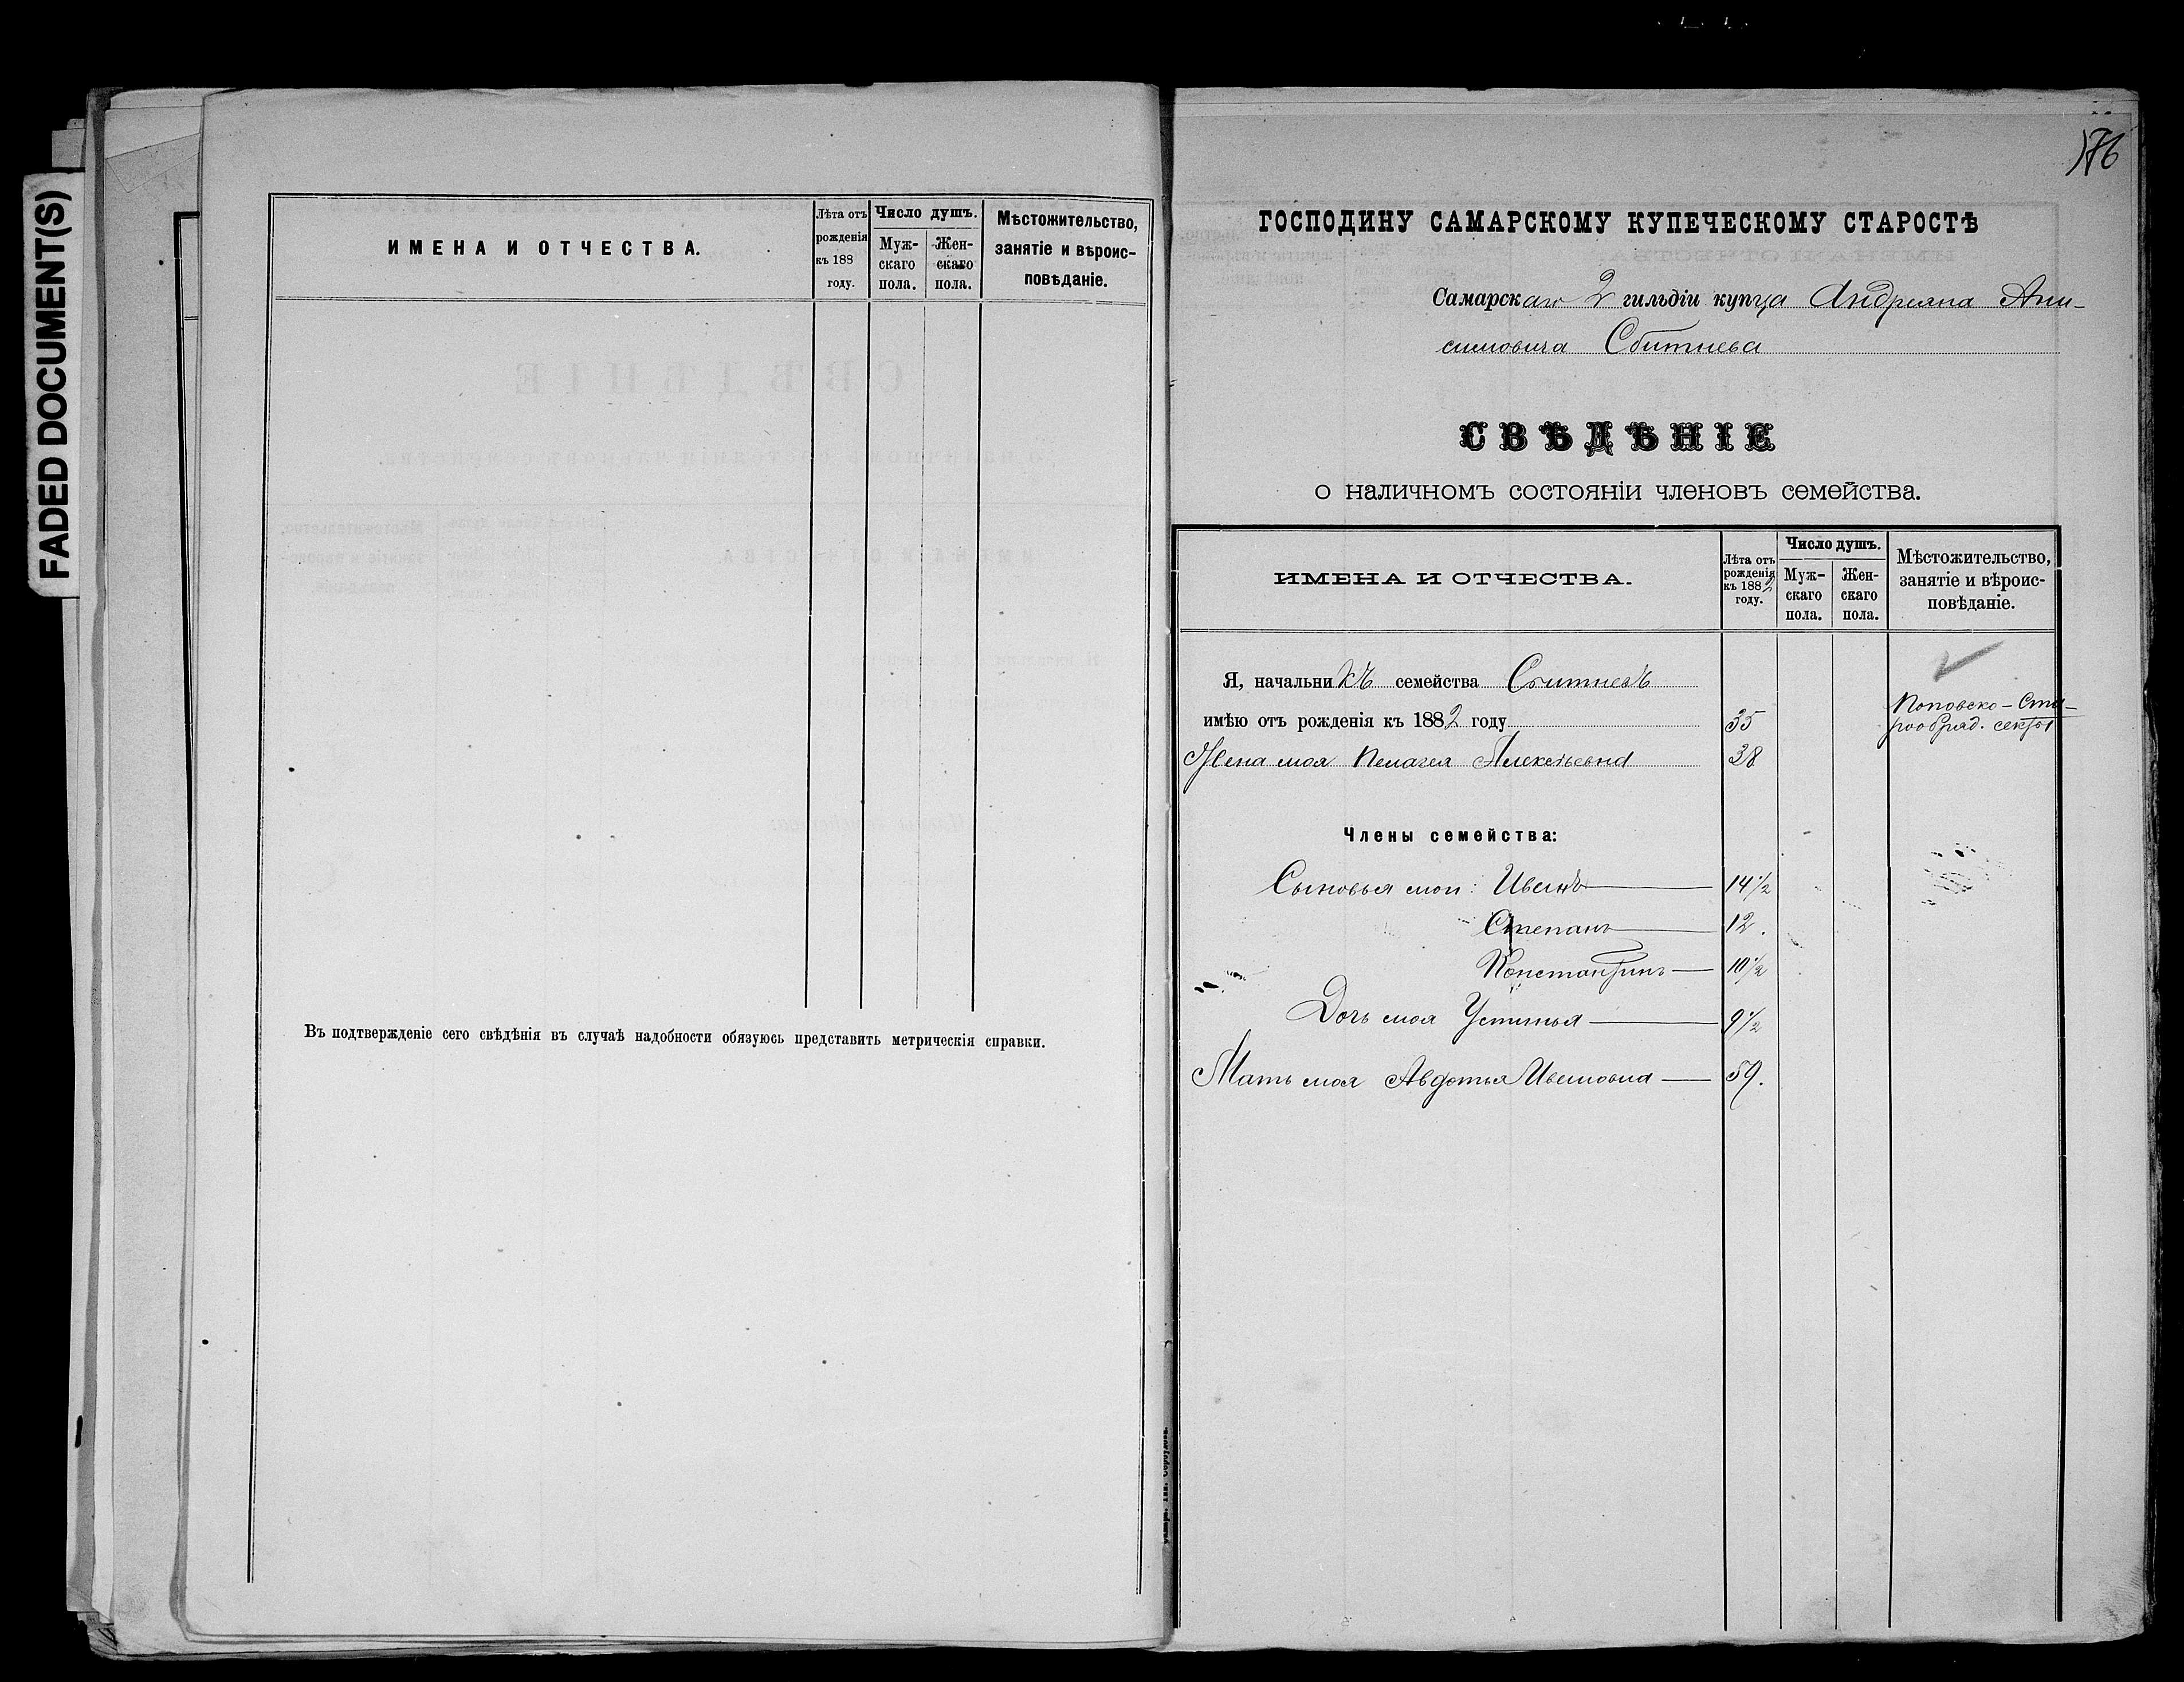 FADED DOCUMENT(S)
ИМЕНА И ОТЧЕСТВА.
Лѣта отъ рожденія къ 188 году.
Число душъ.
Мужскаго пола.
Женскаго пола.
Мѣстожительство, занятіе и вѣроисповѣданіе.
Въ подтвержденіе сего свѣдѣнія въ случаѣ надобности обязуюсь представить метрическія справки.
176
ГОСПОДИНУ САМАРСКОМУ КУПЕЧЕСКОМУ СТАРОСТѢ
Самарскаго 2 гильдіи купца Андреяна Ани-
симовича Сбитнева
СВѢДѢНІЕ
о наличномъ состояніи членовъ семейства.
ИМЕНА И ОТЧЕСТВА.
Лѣта отъ рожденія къ 1882 году.
Число душъ.
Муж-скаго пола.
Жен-скаго пола.
Мѣстожительство, занятіе и вѣроис-повѣданіе.
Я, начальникъ семейства Сбитневъ
имѣю отъ рожденія къ 1882 году 35
Поповско-Ста-
рообряд. секты
Жена моя Пелагея Алексѣевна 38
Члены семейства:
Сыновья мои: Иванъ 14 1/2
Степанъ 12.
Константинъ 10 1/2
Дочь моя Устинья 9 1/2
Мать моя Авдотья Ивановна 59.